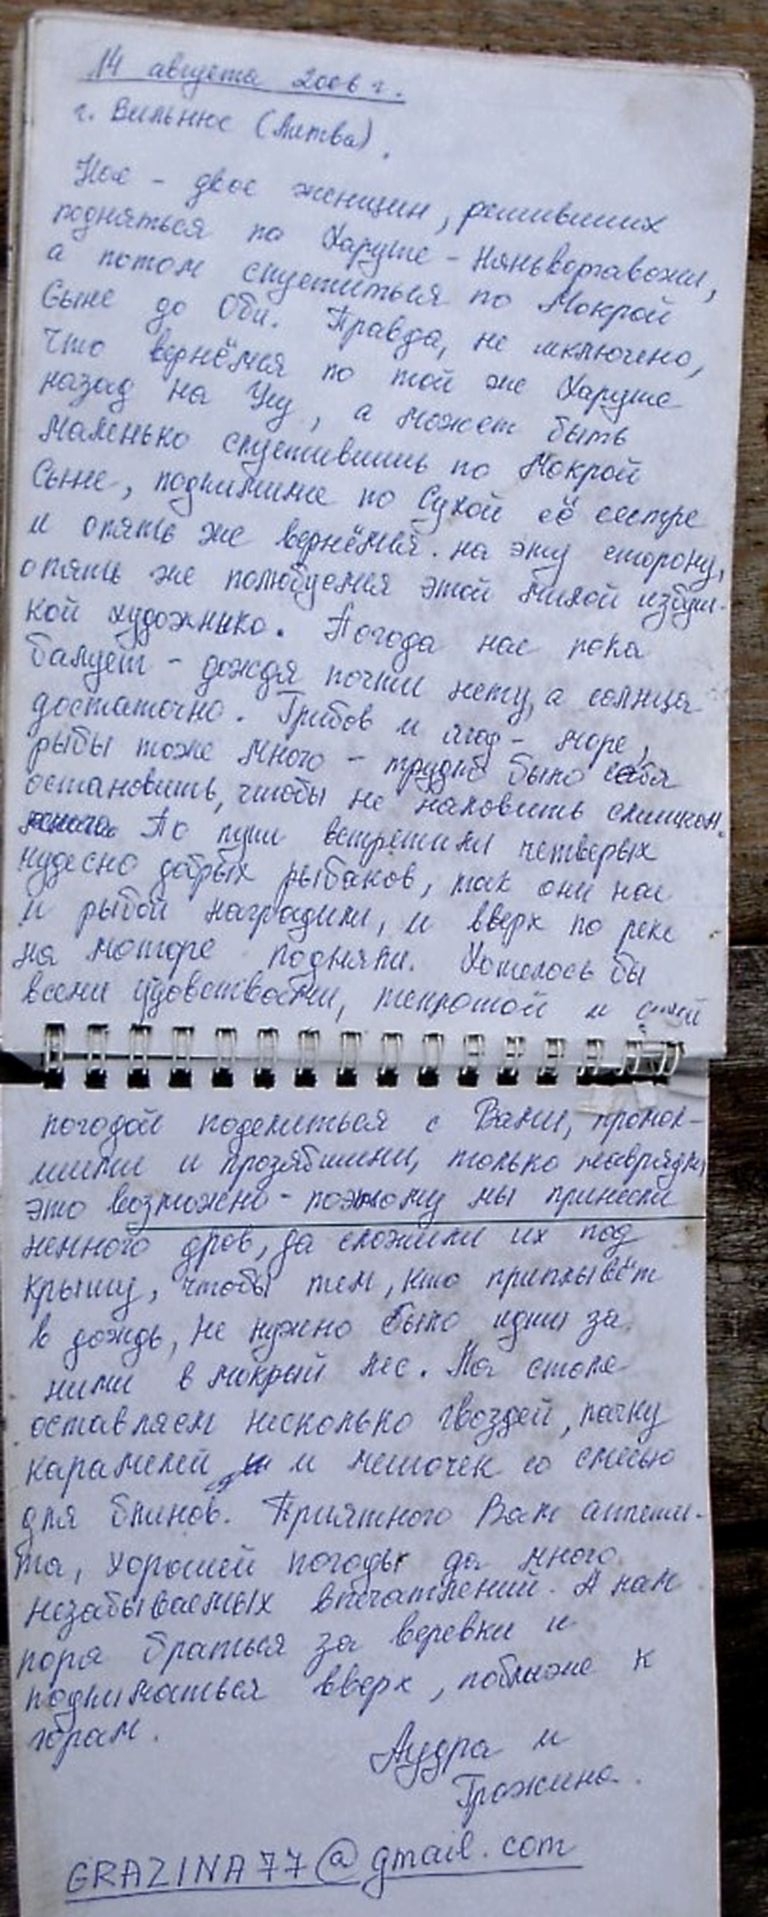 14 августа 2006 г.
г. Вильнюс (Литва).
Нас - двое женщин, решивших
подняться по Харуте - Няньворгавожи,
а потом спуститься по Мокрой
Сыне до Оби. Правда, не исключено,
что вернёмся по той же Харуте
назад на Усу, а может быть
маленько спустившись по Мокрой
Сыне, поднимимся по Сухой её сестре
и опять же вернёмся на эту сторону,
опять же полюбуемся этой милой избуш-
кой художника. Погода нас пока
балует - дождя почти нету, а солнца
достаточно. Грибов и ягод - море,
рыбы тоже много - трудно было себя
остановить, чтобы не наловить слишком
много. По пути встретили четверых
чудесно добрых рыбаков, так они нас
и рыбой наградили, и вверх по реке
на моторе подняли. Хотелось бы
всеми удовствами, теплотой и этой
погодой поделиться с Вами, промок-
шими и прозябшими, только навряд ли
это возможно - поэтому мы принесли
немного дров, да сложили их под
крышу, чтобы тем, кто приплывёт
в дождь, не нужно было идти за
ними в мокрый лес. На столе
оставляем несколько гвоздей, пачку
карамелей и мешочек со смесью
для блинов. Приятного Вам аппети-
та, хорошей погоды да много
незабываемых впечатлений. А нам
пора браться за веревки и
подниматься вверх, поближе к
горам.
Аудра и
Гражина.
GRAZINA77@gmail.com